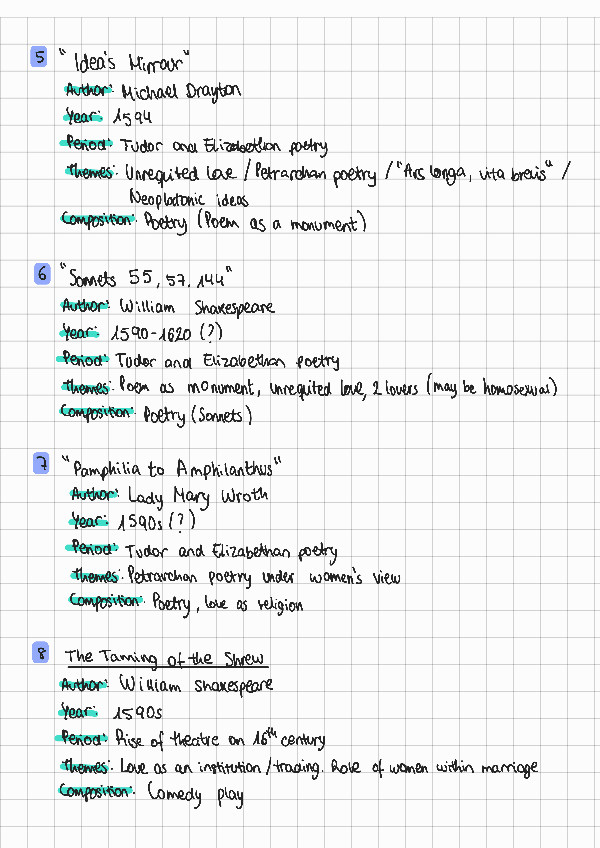 5 "Idea's Mirrour"
Author: Michael Drayton
Year: 1594
Period: Tudor and Elizabethan poetry
Themes: Unrequited love / Petrarchan poetry / "Ars longa, vita brevis" /
Neoplatonic ideas
Composition: Poetry (Poem as a monument)
6 "Sonnets 55, 57, 144"
Author: William Shakespeare
Year: 1590-1620 (?)
Period: Tudor and Elizabethan poetry
Themes: Poem as monument, unrequited love, 2 lovers (may be homosexual)
Composition: Poetry (Sonnets)
7 "Pamphilia to Amphilanthus"
Author: Lady Mary Wroth
Year: 1590s (?)
Period: Tudor and Elizabethan poetry
Themes: Petrarchan poetry under women's view
Composition: Poetry, love as religion
8 The Taming of the Shrew
Author: William Shakespeare
Year: 1590s
Period: Rise of theatre on 16th century
Themes: Love as an institution / trading. Role of women within marriage
Composition: Comedy play